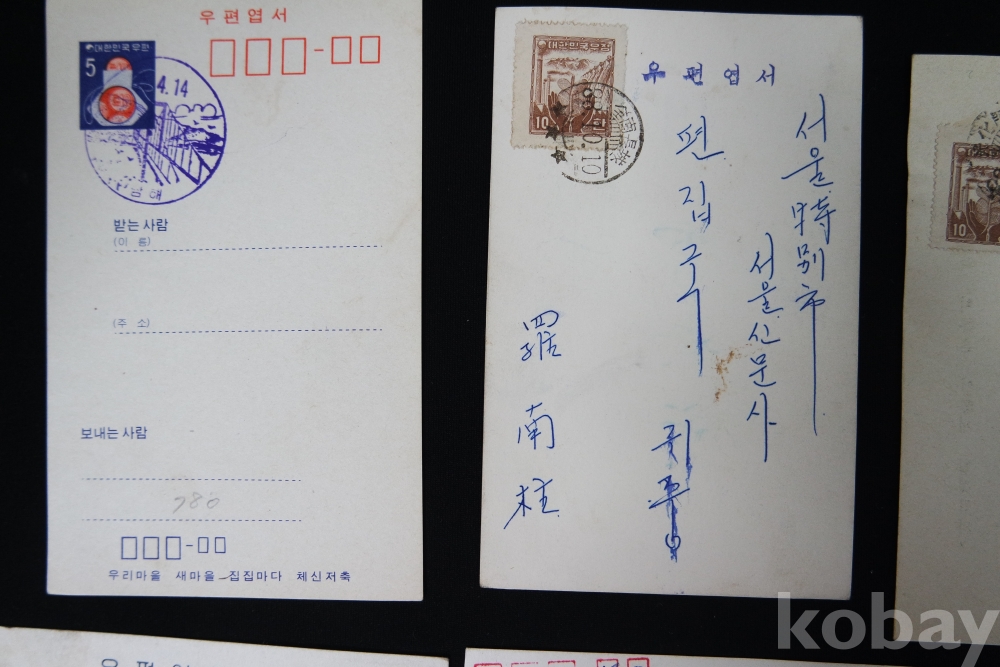 우편엽서
대한민국우편
5
4.14
남해
받는사람
(이 름)
(주 소)
보내는사람
780
우리마을 새마을 집집마다 체신저축
대한민국우표
10
우편엽서
10.10
서울特別市
서울신문사
편집국 귀중
羅南柱
10
우편엽
kobay